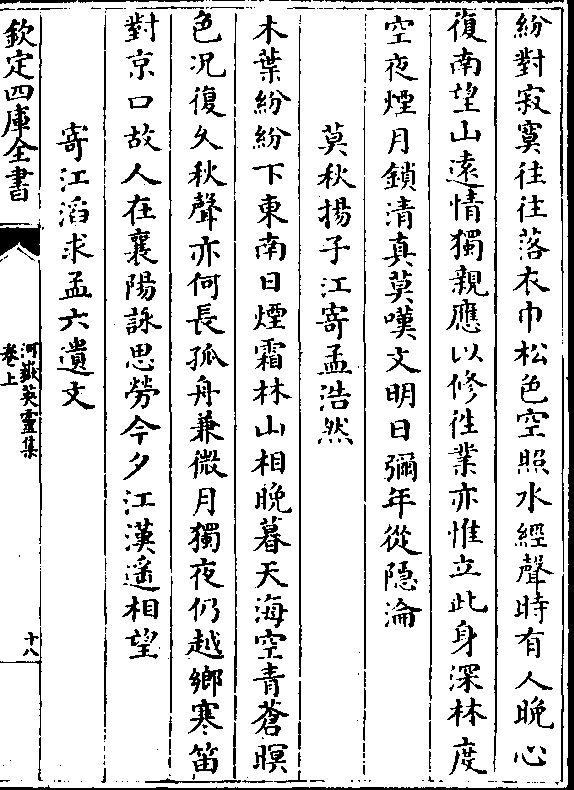 紛對寂寞往往落衣巾松色空照水經聲時有人晚心
復南望山遠情獨親應以修徃業亦惟立此身深林度
空夜煙月鎖清真莫嘆文明日彌年從隱淪
莫秋揚子江寄孟浩然
木葉紛紛下東南日煙霜林山相晚暮天海空青蒼暝
色况復久秋聲亦何長孤舟兼微月獨夜仍越鄉寒笛
對京口故人在襄陽詠思勞今夕江漢遥相望
寄江滔求孟六遺文
欽定四庫全書
河嶽英靈集
卷上
十八